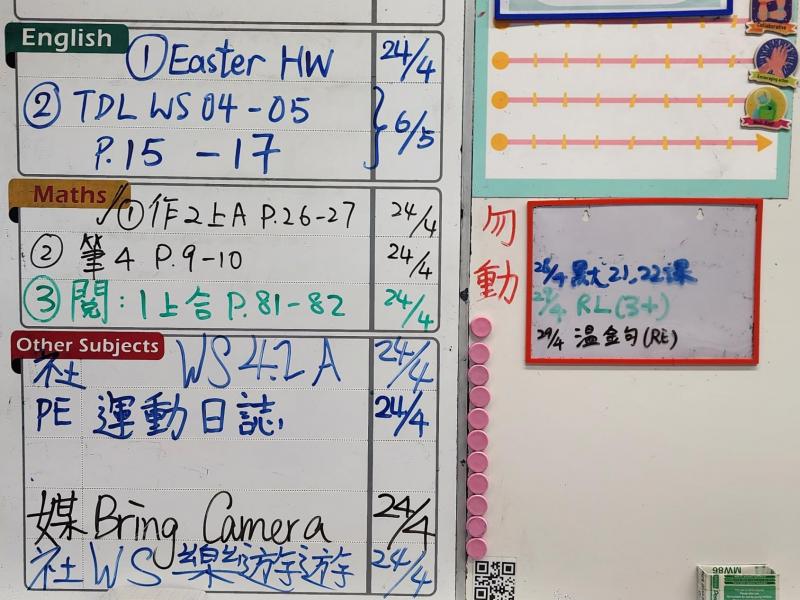 English
① Easter HW 24/4
② TDL WS 04-05
P.15 -17 6/5
Maths
① 作2上A P.26-27 24/4
② 筆4 P.9-10 24/4
③ 閱:1上合 P.81-82 24/4
Other Subjects
社 WS 4.2 A 24/4
PE 運動日誌 24/4
媒 Bring Camera 24/4
社 WS 樂遊遊 24/4
Collaborative
勿動
默 21,22课
RL(3+)
29/4 溫金句(RE)
MW86